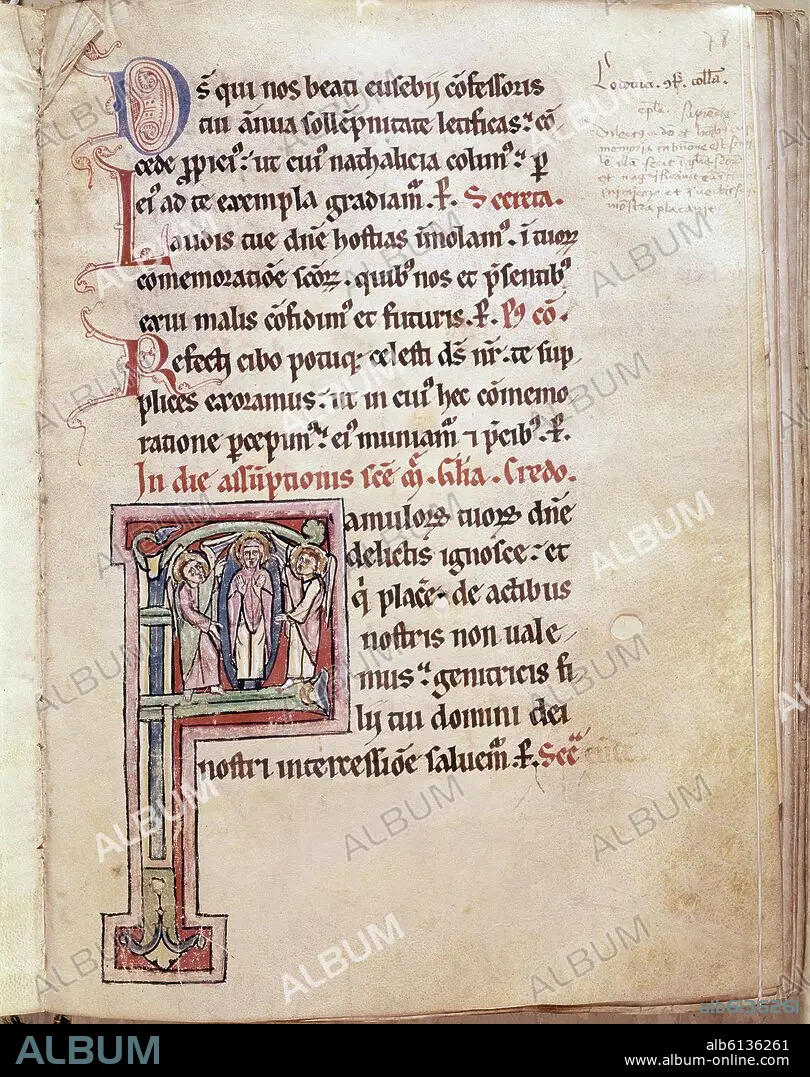 Ds̄ qui nos beati eusebij c̄ofessoris
tui ānua soll̄epnitate letificas: c̄o
cede p̄piciꝰ: ut cuiꝰ nathalicia colimꝰ: per
eiꝰ ad te exempla gradiam̄. P̱. Secreta.
Laudis tue dn̄e hostias īmolamꝰ. ī tuoꝝ
c̄omemoratiōe sc̄oꝝ. quibꝰ nos et p̄sentibꝰ
exui malis c̄ofidimꝰ et futuris. P̱. Pꝰ c̄o.
Refecti cibo potuqꝫ celesti ds̄ nr̄. te sup
plices exoramus: ut in cuiꝰ hec c̄omemo
ratione p̱cepimꝰ: eiꝰ muniam̄ ⁊ p̄cibꝰ. P̱.
In die assūptionis sc̄e m̄. Gl̄ia. Credo.
Famuloꝝ tuoꝝ dn̄e
delictis ignosce: et
q̄ plac̄e. de actibus
nostris non uale
mus: genitricis fi
lij tui domini dei
nostri intercessiōe saluem̄. P̱. Sec̄
78
ALBUM
alb6136261
www.album-online.com